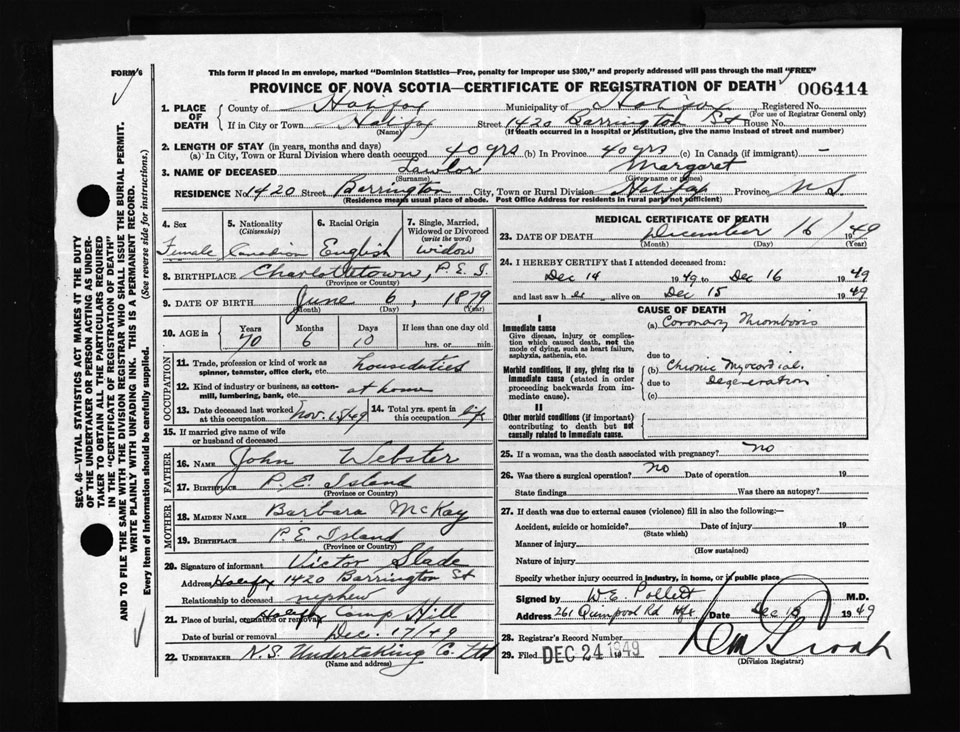 FORM 6
This form if placed in an envelope, marked "Dominion Statistics—Free, penalty for improper use $300," and properly addressed will pass through the mail "FREE"
PROVINCE OF NOVA SCOTIA—CERTIFICATE OF REGISTRATION OF DEATH
006414
1. PLACE OF DEATH County of Halifax Municipality of Halifax Registered No.
(For use of Registrar General only)
If in City or Town Halifax Street 1420 Barrington St House No.
(Name) (If death occurred in a hospital or institution, give the name instead of street and number)
2. LENGTH OF STAY (in years, months and days)
(a) In City, Town or Rural Division where death occurred 40 yrs (b) In Province 40 yrs (c) In Canada (if immigrant) —
3. NAME OF DECEASED Lawlor Margaret
(Surname) (Given name or names)
RESIDENCE No. 1420 Street Barrington City, Town or Rural Division Halifax Province N S.
(Residence means usual place of abode. Post Office Address for residents in rural parts not sufficient)
4. Sex Female
5. Nationality (Citizenship) Canadian
6. Racial Origin English
7. Single, Married, Widowed or Divorced (write the word) Widow
8. BIRTHPLACE Charlottetown, P.E.I
(Province or Country)
9. DATE OF BIRTH June 6, 1879
(Month) (Day) (Year)
10. AGE in Years 70 Months 6 Days 10 If less than one day old hrs. or min.
OCCUPATION
11. Trade, profession or kind of work as spinner, teamster, office clerk, etc. houseduties
12. Kind of industry or business, as cotton-mill, lumbering, bank, etc. at home
13. Date deceased last worked at this occupation Nov. 1949 14. Total yrs. spent in this occupation life
15. If married give name of wife or husband of deceased
FATHER
16. NAME John Webster
17. BIRTHPLACE P.E. Island
(Province or Country)
MOTHER
18. MAIDEN NAME Barbara McKay
19. BIRTHPLACE P.E. Island
(Province or Country)
20. Signature of informant Victor Slade
Address Halifax 1420 Barrington St
Relationship to deceased nephew
21. Place of burial, cremation or removal Halifax Camp Hill
Date of burial or removal Dec. 17/49
22. UNDERTAKER N.S. Undertaking Co. Ltd
(Name and address)
MEDICAL CERTIFICATE OF DEATH
23. DATE OF DEATH December 16/ 1949
(Month) (Day) (Year)
24. I HEREBY CERTIFY that I attended deceased from:
Dec 14 1949 to Dec 16 1949
and last saw h er alive on Dec 15 1949
CAUSE OF DEATH
I
Immediate cause
Give disease, injury or complication which caused death, not the mode of dying, such as heart failure, asphyxia, asthenia, etc.
(a) Coronary Thrombosis
due to
Morbid conditions, if any, giving rise to immediate cause (stated in order proceeding backwards from immediate cause).
(b) Chronic Myocardial
due to Degeneration
(c)
II
Other morbid conditions (if important) contributing to death but not causally related to immediate cause.
25. If a woman, was the death associated with pregnancy? no
26. Was there a surgical operation? no Date of operation 19
State findings Was there an autopsy?
27. If death was due to external causes (violence) fill in also the following:—
Accident, suicide or homicide? Date of injury 19
(State which)
Manner of injury
(How sustained)
Nature of injury
Specify whether injury occurred in industry, in home, or in public place
Signed by W.E. Pollett M.D.
Address 261 Quinpool Rd Hfx. Date Dec 1949
28. Registrar's Record Number
29. Filed DEC 24 1949
(Division Registrar)
SEC. 46—VITAL STATISTICS ACT MAKES IT THE DUTY
OF THE UNDERTAKER OR PERSON ACTING AS UNDER-
TAKER TO OBTAIN ALL THE PARTICULARS REQUIRED
IN THE "CERTIFICATE OF REGISTRATION OF DEATH"
AND TO FILE THE SAME WITH THE DIVISION REGISTRAR WHO SHALL ISSUE THE BURIAL PERMIT.
WRITE PLAINLY WITH UNFADING INK. THIS IS A PERMANENT RECORD.
Every item of information should be carefully supplied. (See reverse side for instructions.)